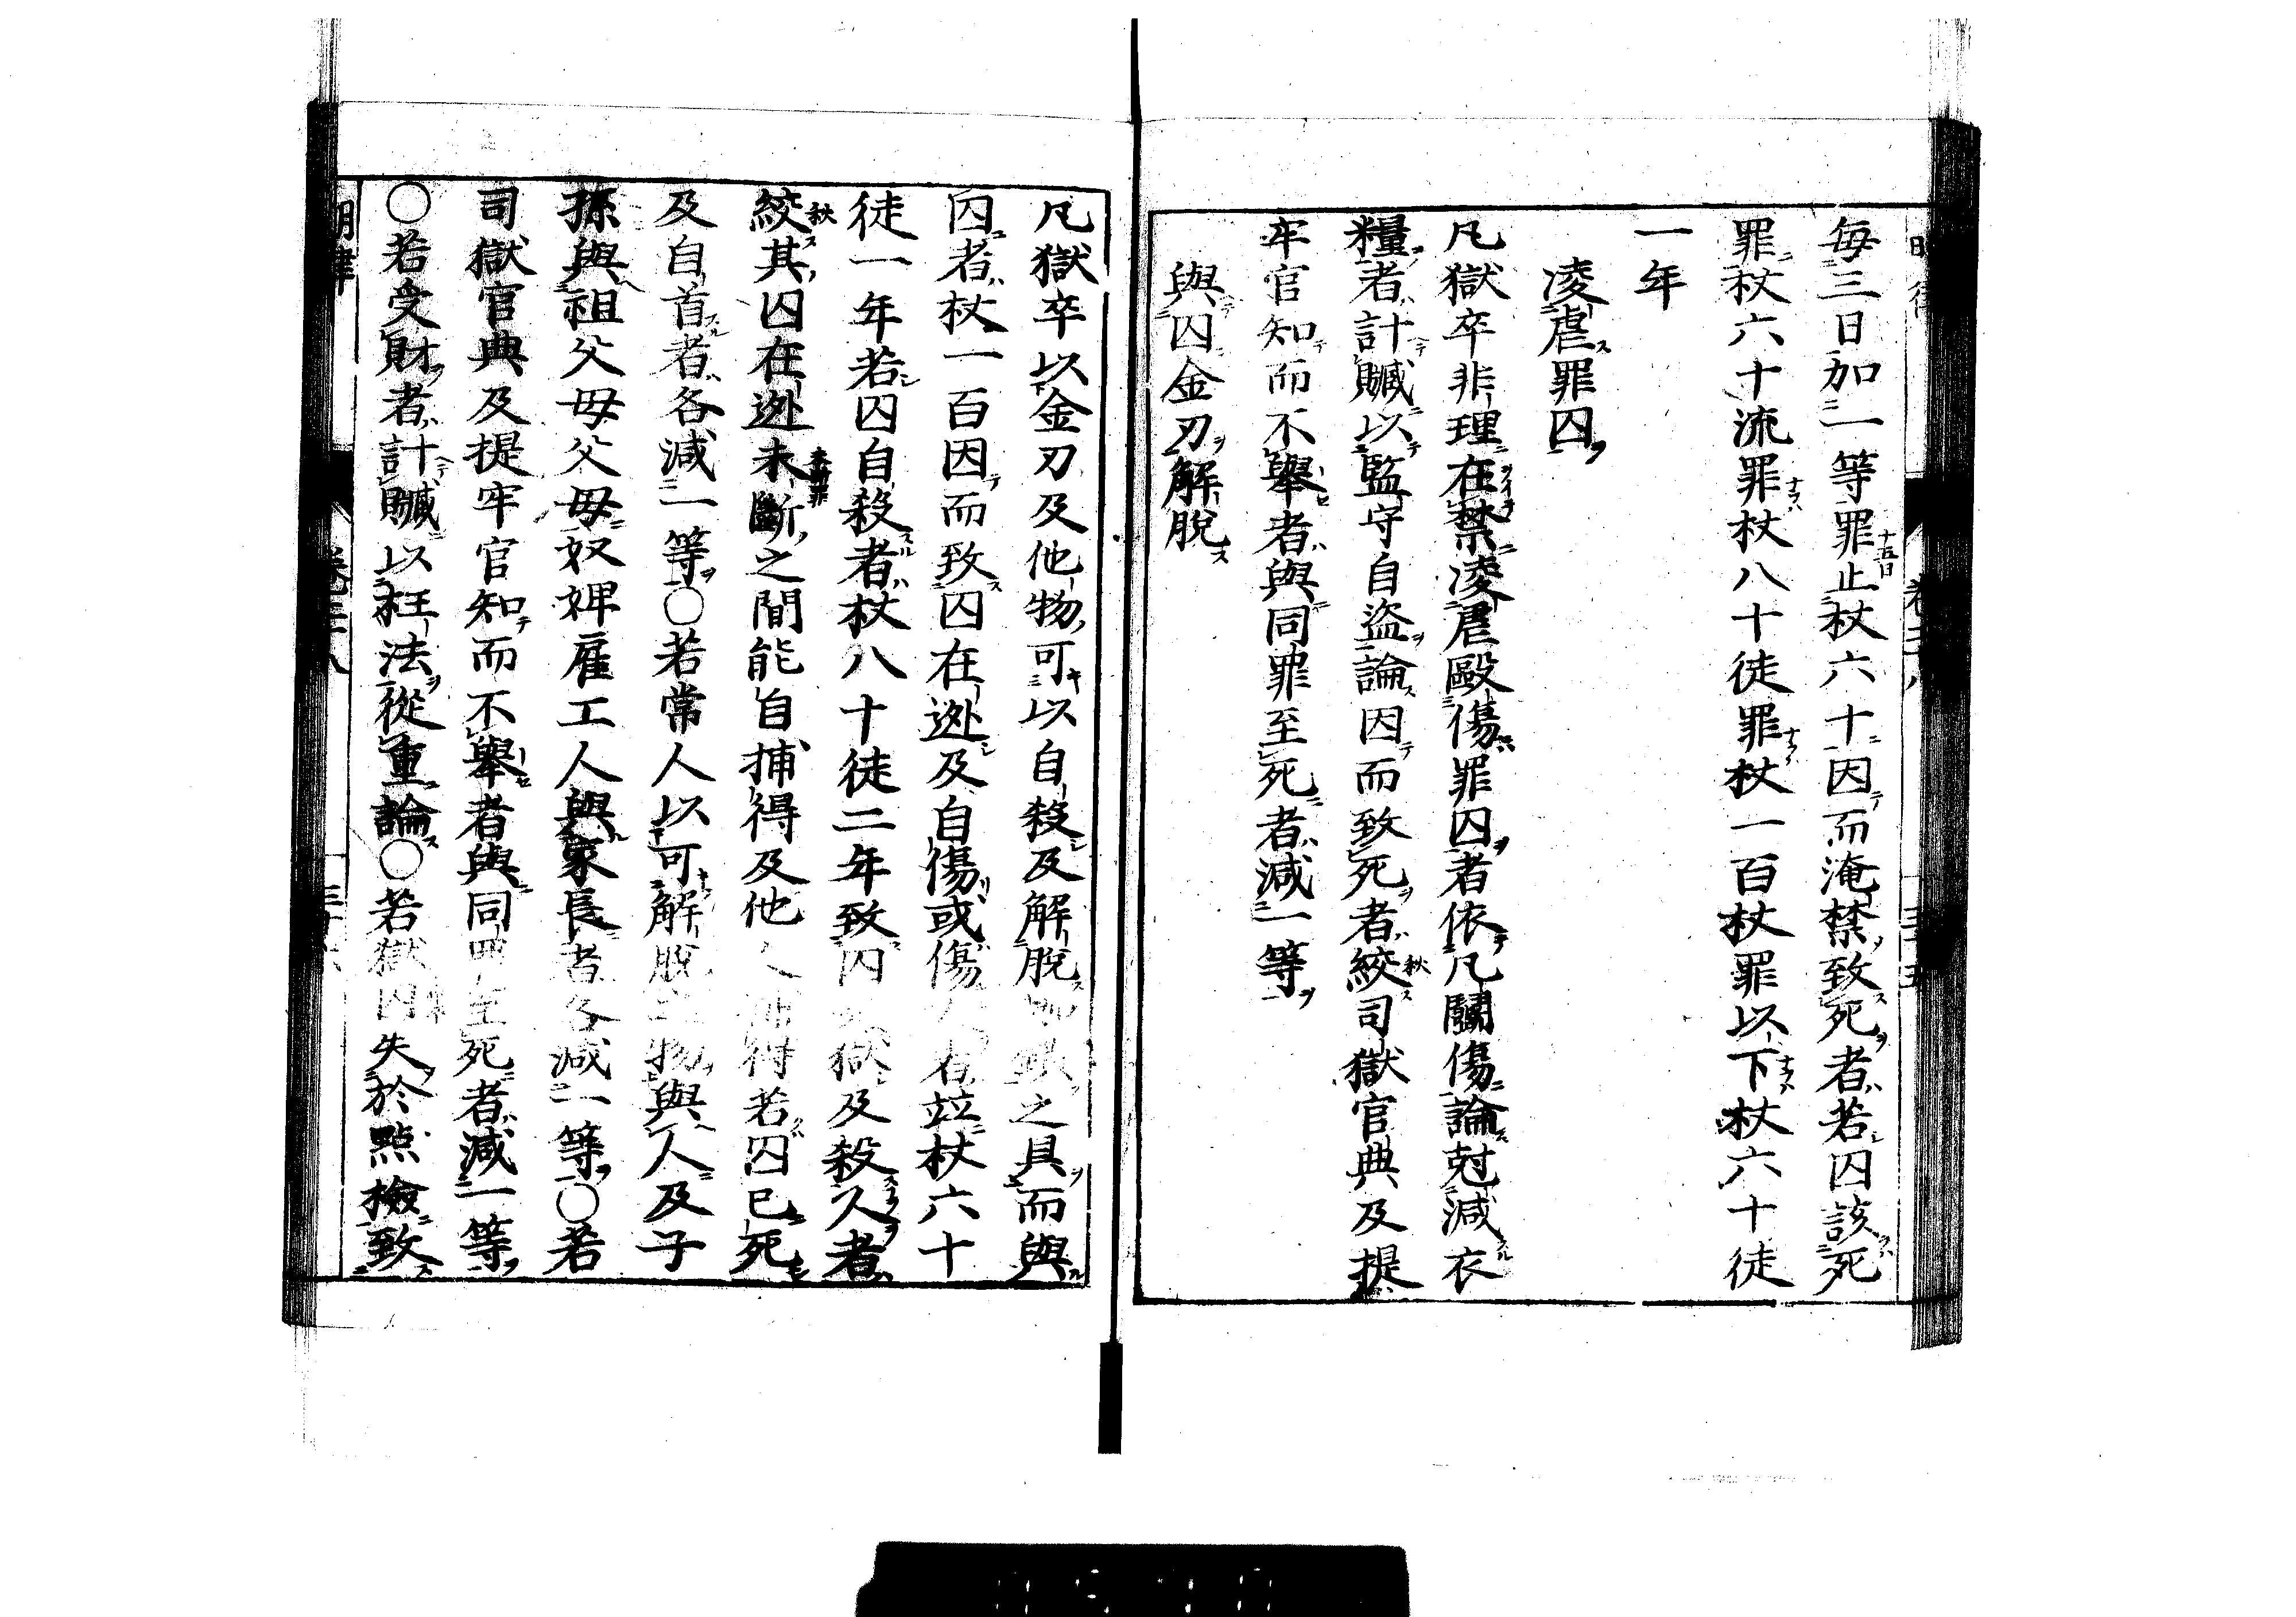 每三日加一等罪止杖六十因而淹禁致死者若囚該死
罪杖六十流罪杖八十徒罪杖一百杖罪以下杖六十徒
一年
凌虐罪囚
凡獄卒非理在禁凌虐毆傷罪囚者依凡鬭傷論尅減衣
糧者計贓以監守自盜論因而致死者絞司獄官典及提
牢官知而不舉者與同罪至死者減一等
與囚金刃解脫
凡獄卒以金刃及他物可以自殺及解脫之具而與
囚者杖一百因而致囚在逃及自傷或傷者竝杖六十
徒一年若囚自殺者杖八十徒二年致囚獄及殺人者
絞其囚在逃未斷之間能自捕得及他得若囚已死
及自首者各減一等○若常人以可解脫物與人及子
孫與祖父母父母奴婢雇工人與家長者各減一等○若
司獄官典及提牢官知而不舉者與同至死者減一等
○若受財者計贓以枉法從重論○若獄囚失於點檢致